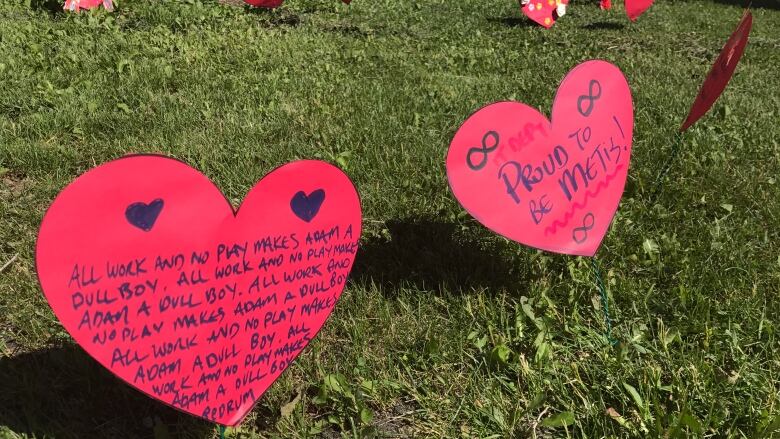 ALL WORK AND NO PLAY MAKES ADAM A
DULL BOY. ALL WORK AND NO PLAY MAKES
ADAM A DULL BOY. ALL WORK AND
NO PLAY MAKES ADAM A DULL BOY
ALL WORK AND NO PLAY MAKES
ADAM A DULL BOY. ALL
WORK AND NO PLAY MAKES
ADAM A DULL BOY
REDRUM
PROUD TO
BE METIS!